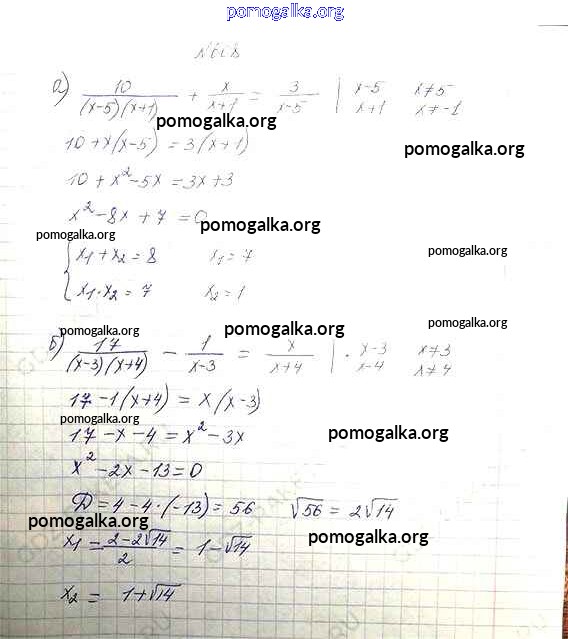 pomogalka.org
а) 10/((x-5)(x+1)) + x/(x+1) = 3/(x-5) | x-5 x+1 x≠5 x≠-1
pomogalka.org
10+x(x-5) = 3(x+1) pomogalka.org
10 + x² - 5x = 3x + 3
x² - 8x + 7 = 0 pomogalka.org
pomogalka.org
{ x₁ + x₂ = 8 x₁ = 7 pomogalka.org
x₁·x₂ = 7 x₂ = 1
pomogalka.org pomogalka.org pomogalka.org
б) 17/((x-3)(x+4)) - 1/(x-3) = x/(x+4) | · x-3 x-4 x≠3 x≠4
17 - 1(x+4) = x(x-3)
pomogalka.org
17 - x - 4 = x² - 3x pomogalka.org
x² - 2x - 13 = 0
D = 4 - 4·(-13) = 56 √56 = 2√14
pomogalka.org
x₁ = (2-2√14)/2 = 1-√14 pomogalka.org
x₂ = 1+√14